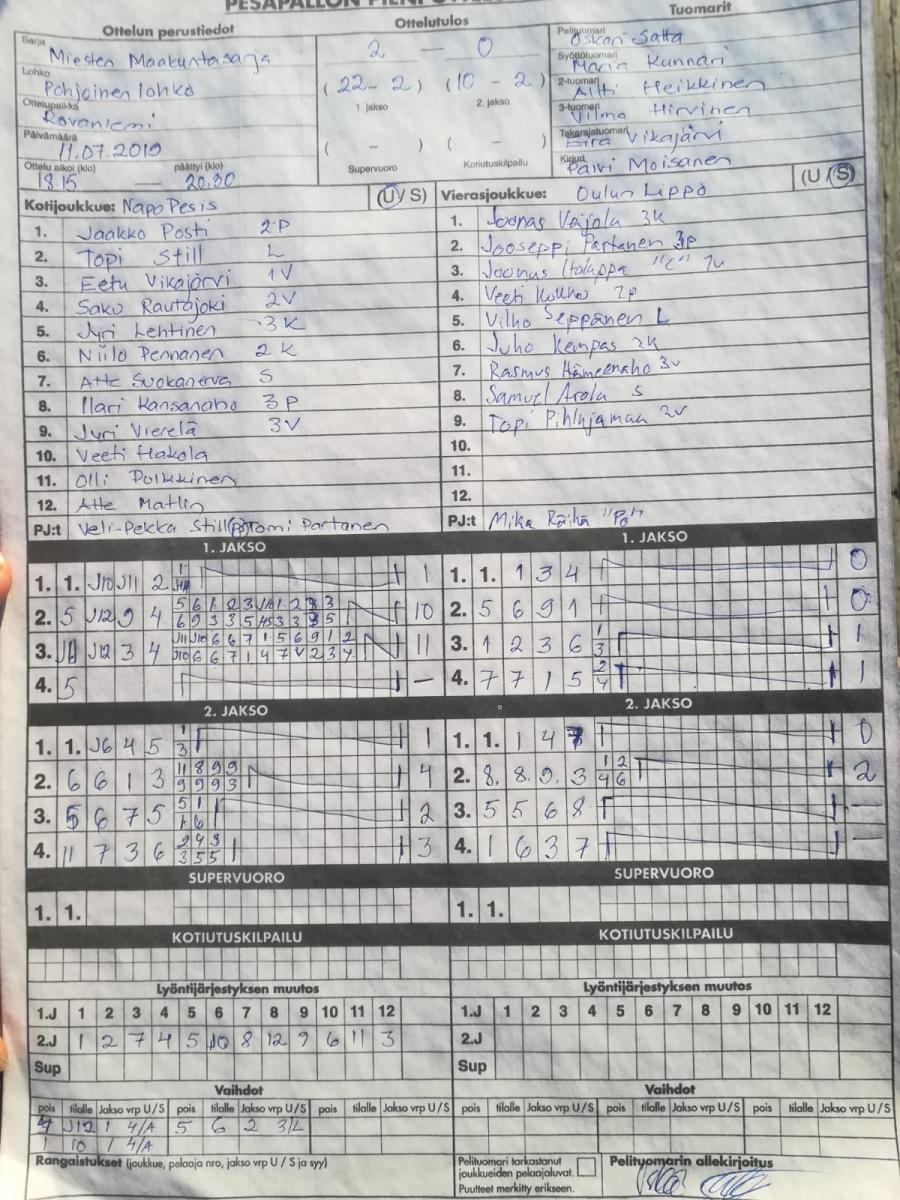 Ottelun perustiedot
Sarja
Miesten Maakuntasarja
Lohko
Pohjoinen lohko
Ottelupaikka
Rovaniemi
Päivämäärä
11.07.2019
Ottelu alkoi (klo) päättyi (klo)
18.15 — 20.30
Ottelutulos
2 — 0
(22 - 2) (10 - 2)
1. jakso 2. jakso
( - ) ( - )
Supervuoro Kotiutuskilpailu
Tuomarit
Pelituomari
Oskari Satta
Syöttötuomari
Maria Kunnari
2-tuomari
Altti Heikkinen
3-tuomari
Vilma Hirvinen
Takarajatuomari
Vikajärvi
Kirjuri
Päivi Moisanen
Kotijoukkue: NapoPesis (U/S)
1. Jaakko Posti 2P
2. Topi Still L
3. Eetu Vikajärvi 1V
4. Saku Rautajoki 2V
5. Jyri Lehtinen 3K
6. Niilo Pennanen 2K
7. Atte Suokanerva S
8. Ilari Kansanaho 3P
9. Jyri Vierelä 3V
10. Veeti Hakola
11. Olli Polkkinen
12. Atte Matlin
PJ:t Veli-Pekka Still Tomi Partanen
Vierasjoukkue: Oulun Lippo (U/S)
1. Joonas Vajola 3K
2. Jooseppi Partanen 3p
3. Joonas "C"
4. Veeti 2p
5. Vilho Seppänen L
6. Juho Kempas 2K
7. Rasmus Hämeenaho 3v
8. Samuel Arola S
9. Topi Pihlajamaa 2v
10.
11.
12.
PJ:t Mika Räihä "Po"
1. JAKSO
1. 1. J10 J11 2 1
2. 5 J12 9 4 10
3. J12 3 4 11
4. 5 —
1. JAKSO
1. 1. 1 3 4 0
2. 5 6 9 1 0
3. 1 2 3 6 1 3 1
4. 7 7 1 5 2 4 1
2. JAKSO
1. 1. J6 4 5 1 3 1
2. 6 6 1 3 11 8 9 9 9 9 9 3 4
3. 5 6 7 5 5 1 1 6 2
4. 11 7 3 6 2 4 3 3 5 5 3
2. JAKSO
1. 1. 1 4 7 0
2. 8. 8. 9. 3 1 2 4 6 2
3. 5 5 6 8 —
4. 1 6 3 7 —
SUPERVUORO
1. 1.
SUPERVUORO
1. 1.
KOTIUTUSKILPAILU
KOTIUTUSKILPAILU
Lyöntijärjestyksen muutos
1.J 1 2 3 4 5 6 7 8 9 10 11 12
2.J 1 2 7 4 5 10 8 12 9 6 11 3
Sup
Lyöntijärjestyksen muutos
1.J 1 2 3 4 5 6 7 8 9 10 11 12
2.J
Sup
Vaihdot
pois tilalle Jakso vrp U/S pois tilalle Jakso vrp U/S pois tilalle Jakso vrp U/S
J12 1 4/A 5 6 2 3/L
1 10 1 4/A
Vaihdot
pois tilalle Jakso vrp U/S pois tilalle Jakso vrp U/S pois tilalle Jakso vrp U/S
Rangaistukset (joukkue, pelaaja nro, jakso vrp U / S ja syy)
Pelituomari tarkastanut
joukkueiden pelaajaluvat.
Puutteet merkitty erikseen.
Pelituomarin allekirjoitus